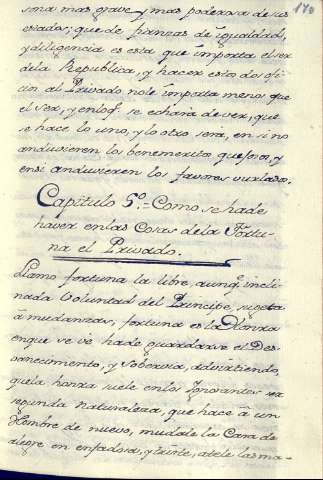 170
sona mas grave y mas poderosa de sus
estados; que de franzas de igualdad,
y diligencia es esta que importa el ser
de la Republica, y hacer estos dos ofi-
cios al Privado no le importa menos que
el ser, y en loq.e se echaria de ver, que
se hace lo uno, y lo otro sera, en si no
anduvieren los benemeritos quejosos, y
en si anduvieren los favores
Capitulo 5.º = Como se hade
haver en las Cosas de la Fortu-
na el Privado.
Llamo fortuna la libre, aunq.e incli-
nada Voluntad del Principe, sugeta
â mudanzas, fortuna es la Honrra
en que se vè hade guardarse el Des-
vanecimiento, y Sobervia, advirtiendo,
que la honrra suele en los Ignorantes ser
segunda naturaleza, que hace â un
Hombre de nuevo, mudale la Cara de
alegre en enfadosa, y triste, atale las ma-